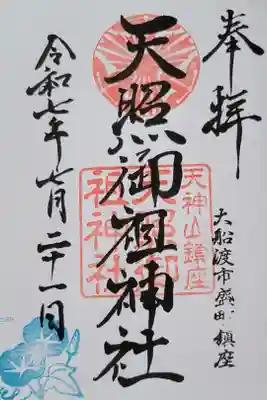 奉拝
大船渡市盛町鎮座
天照御祖神社
天神山鎮座
天照御
祖神社
令和七年七月二十一日